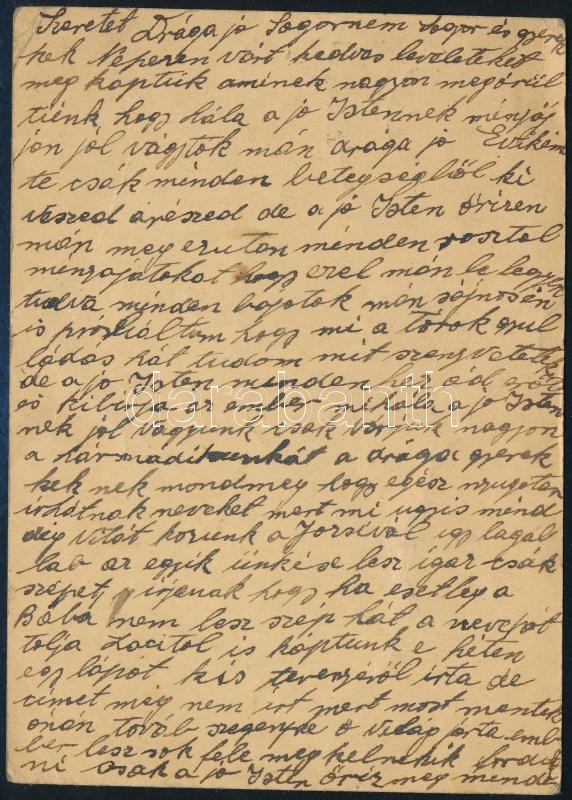 Szeretet Drága jó Sogornem sogor és gyerek
kek Neperen várt kedves leveleteket
meg kaptuk aminek nagyon megörül
tünk hogy hála a jó Istennek minyáj
jon jól vagytok mán drága jó Evikém
te csak minden betegségböl ki
veszed a részed de a jó Isten örizen
mán meg ezutan minden rosztol
minyajatokat hogy ezel mán le legyen
tudva minden bajotok mán sajnosén
is probáltam hogy mi a torok gyul
ladás hát tudom mit szenyvetetek
de a jó Isten minden hez ád eröt
és ki birja az ember mi hála a jó Isten
nek jól vagyunk csak várjuk nagyon
a harmadik a drága gyerek
kek nek mondmeg hogy egész nyugoten
irjátnak neveket mert mi ugyis mind
dig vitát hozunk a Jozsival igy lagab
lab az egyik ünké se lesz igaz csak
szépet irjenak hogy ha esetleg a
Baba nem lesz szép hát a nevejót
tolja Lacitol is kaptunk e héten
egy lápot kis terenzéröl irta de
címet még nem irt mert most mentek
onán továb szegenyke ö világ járta emb
ber lesz sok fele meg kel nekik fordul
ni csak a jó Isten öriz meg minde
darabanth